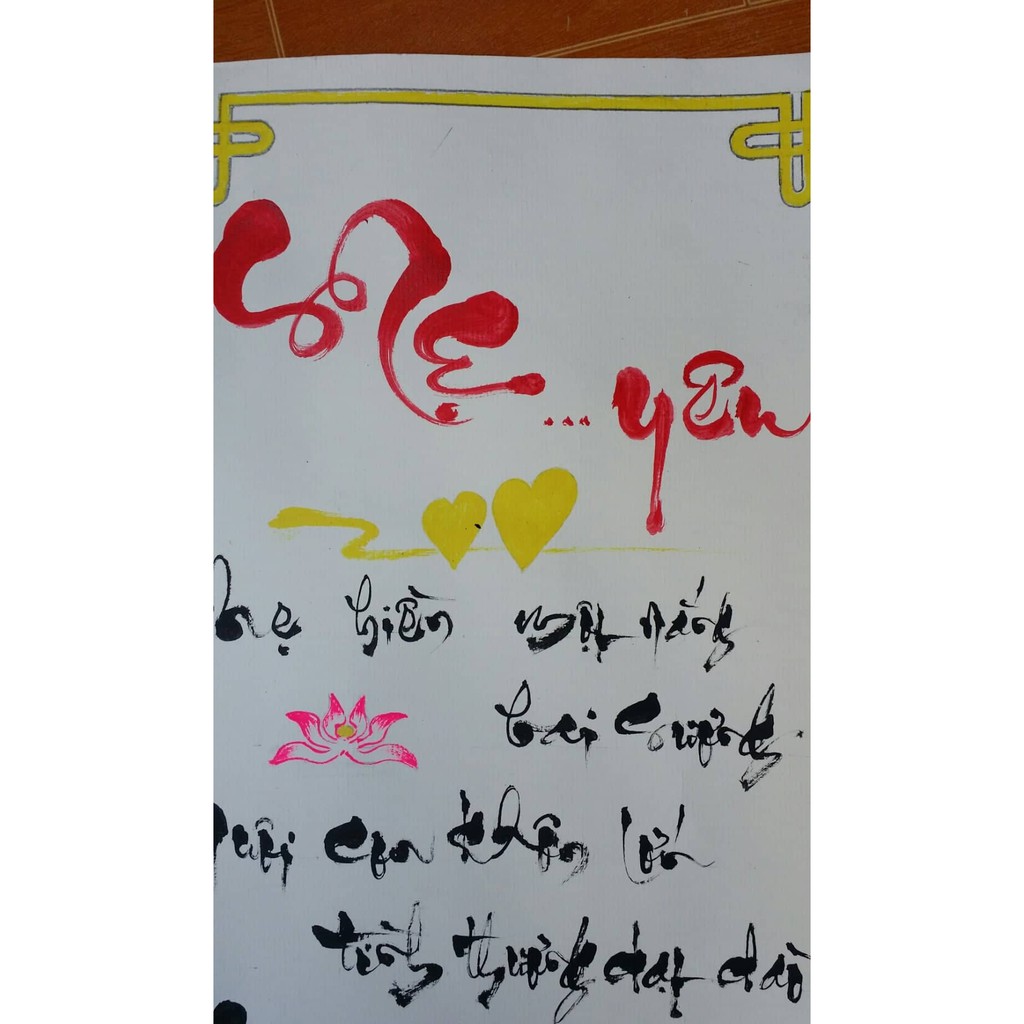 Mẹ... yên
Mẹ hiền một nắng
hai sương
Nuôi con khôn lớn
tình thương dạt dào